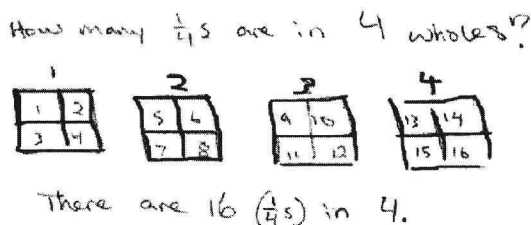 How many 1/4s are in 4 wholes?
1 2 3 4
1 2 5 6 9 10 13 14
3 4 7 8 11 12 15 16
There are 16 (1/4s) in 4.